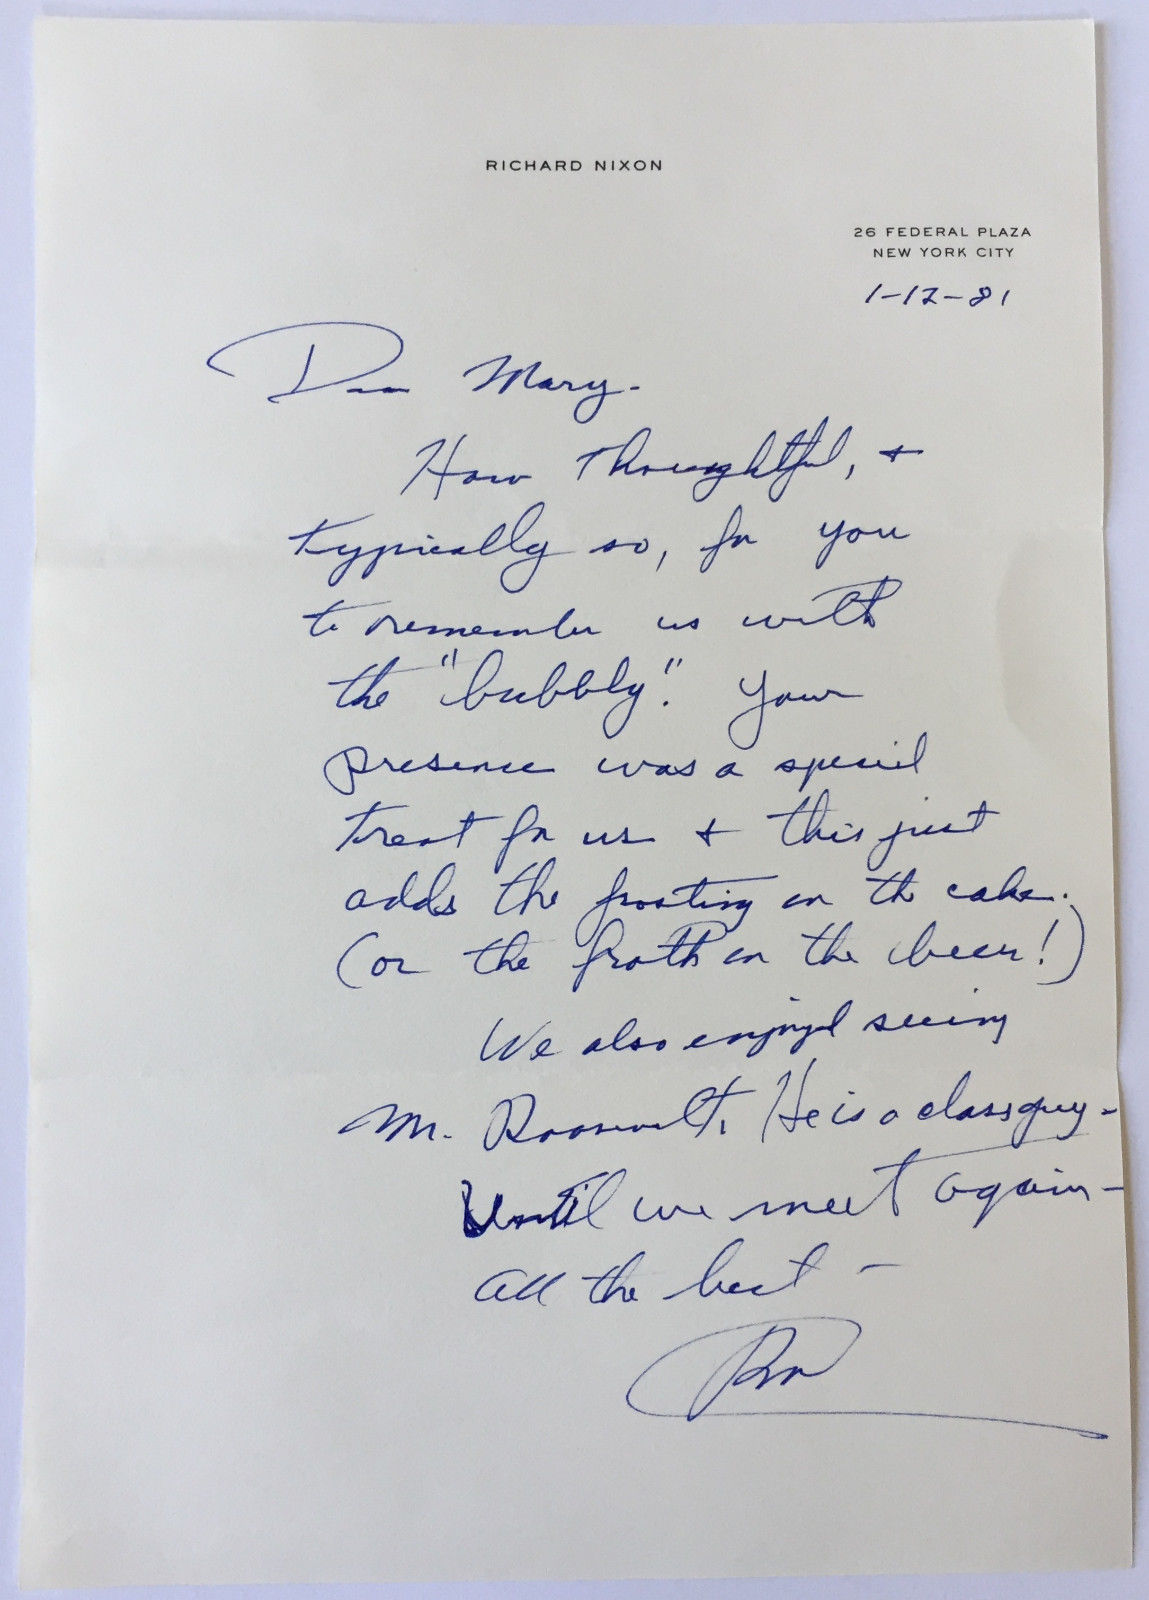 RICHARD NIXON
26 FEDERAL PLAZA
NEW YORK CITY
1-12-81
Dear Mary-
How thoughtful, +
typically so, for you
to remember us with
the "bubbly". Your
presence was a special
treat for us + this just
adds the frosting on the cake.
(or the froth on the beer!)
We also enjoyed seeing
Mr. Roosevelt. He is a class guy-
Until we meet again-
All the best-
RN